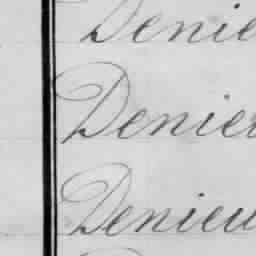 Denie
Denier
Denieu